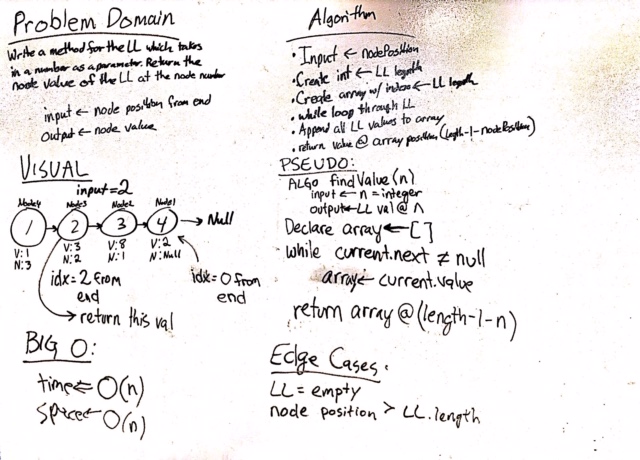 Problem Domain
Write a method for the LL which takes
in a number as a parameter. Return the
node value of the LL at the node number
input ← node position from end
output ← node value
VISUAL
input=2
Node4 Node3 Node2 Node1
1 2 3 4 → Null
V:1 V:3 V:8 V:2
N:3 N:2 N:1 N:Null
idx=2 from
end
idx=0 from
end
→ return this val
BIG O:
time ← O(n)
space ← O(n)
Algorithm
• Input ← nodePosition
• Create int ← LL length
• Create array w/ indexes ← LL length
• while loop through LL
• Append all LL values to array
• return value @ array position (length-1-nodePosition)
PSEUDO:
ALGO findValue(n)
input ← n = integer
output ← LL val @ n
Declare array ← []
while current.next ≠ null
array ← current.value
return array @ (length-1-n)
Edge Cases.
LL = empty
node position > LL.length